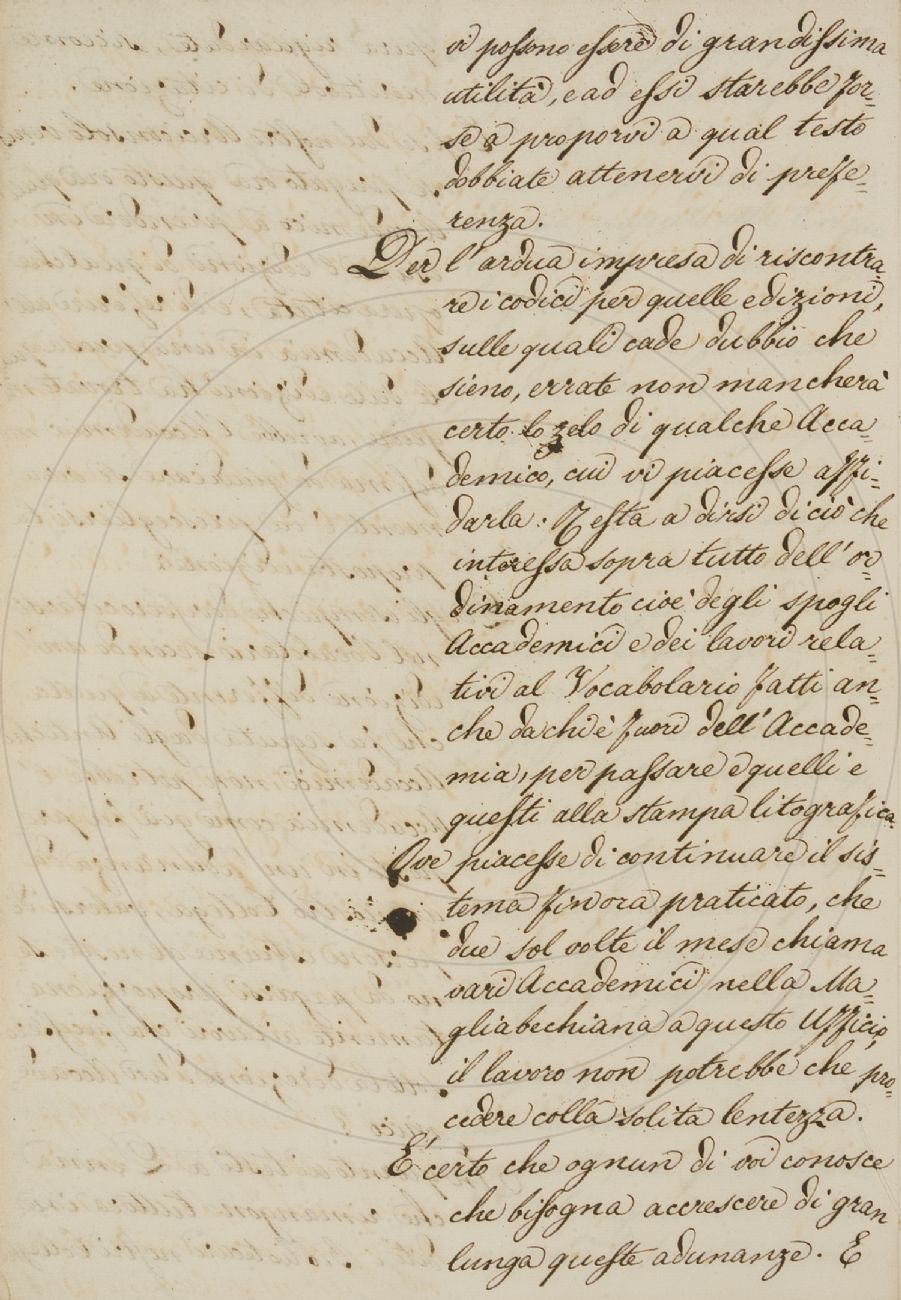 vi possono essere di grandissima
utilità, e ad essi starebbe for=
se a proporvi a qual testo
dobbiate attenervi di prefe=
renza.
Per l'ardua impresa di riscontra=
re i codici per quelle edizioni,
sulle quali cade dubbio che
sieno, errate non mancherà
certo lo zelo di qualche Acca=
demico, cui vi piacesse affi=
darla. Resta a dirsi di ciò che
interessa sopra tutto dell'or=
dinamento cioè degli spogli
Accademici e dei lavori rela=
tivi al Vocabolario fatti an=
che da chi è fuori dell'Accade=
mia, per passare e quelli e
questi alla stampa litografica.
Ove piacesse di continuare il sis=
tema fin ora praticato, che
due sol volte il mese chiama
vari Accademici nella Ma=
gliabechiana a questo Ufficio,
il lavoro non potrebbe che pro=
cedere colla solita lentezza.
E' certo che ognun di voi conosce
che bisogna accrescere di gran
lunga queste adunanze. E